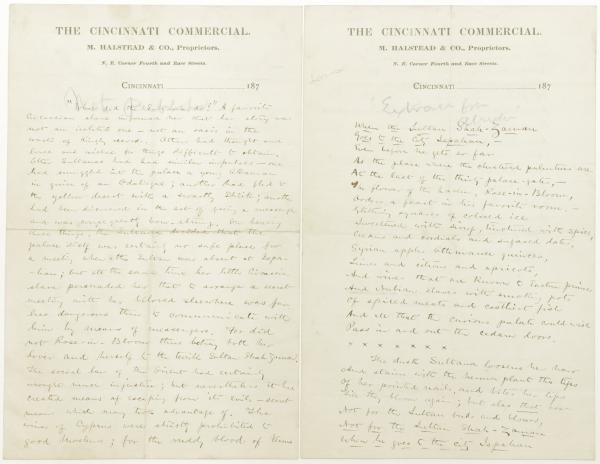 THE CINCINNATI COMMERCIAL.
M. HALSTEAD & CO., Proprietors.
N. E. Corner Fourth and Race Streets.
CINCINNATI 187
"What did the do?" A favorite
Circassian slave informed her that her story was
not an isolated one – not an oasis in the
waste of kingly records. Others had thought and
love one nicher for things difficult to obtain.
Other Sultanas had had similar impulses – one
had smuggled into the palace a young
in guise of an Odalisque; another had fled to
the yellow desert with a swarthy Sheik; another
had been discovered in the act of giving a message
and was bow-strung. On hearing
these things the Sultana decided that the
palace itself was certainly no safe place for
a meeting when the Sultan was absent at Ispa-
han; but at the same time her little Circassian
slave persuaded her that to arrange a secret
meeting with her beloved elsewhere was far
less dangerous than to communicate with
him by means of messengers. For did
not Rose-in-Bloom thus betray both her
lover and herself to the terrible Sultan Shah-Zaman.
The social law of the Orient had certainly
wrought never injustice; but nevertheless it had
created means of escaping from its evils – secret
means which many took advantage of. The
wines of Cyprus were strictly prohibited to
good Moslems; for the ruddy blood of
THE CINCINNATI COMMERCIAL.
M. HALSTEAD & CO., Proprietors.
N. E. Corner Fourth and Race Streets.
CINCINNATI 187
Extract from
When the Sultan Shah-Zaman
Goes to the city Ispahan,
Even before he gets so far
As the place where the clustered palm-trees are,
At the last of the thirty palace-gates,
The flower of the harem, Rose-in-Bloom,
Orders a feast in his favorite room.–
Glittering squares of colored ice
Sweetened with syrup, tinctured with spice,
Creams and cordials and sugared dates,
Syrian apples, Othmanee quinces,
Limes and citrons and apricots,
And wines that are known to Eastern princes
And Nubian slaves with smoking pots
Of spiced meats and costliest fish
And all that the curious palate could wish
Pass in and out the cedarn doors.
x x x x x x
The dusk Sultana loosens her hair
And stains with the henna plant the tips
Of her pointed nails, and bites her lips
Till they bloom again; but alas that rose
Not for the Sultan buds and blows,
Not for the Sultan Shah-Zaman
When he goes to the city Ispahan